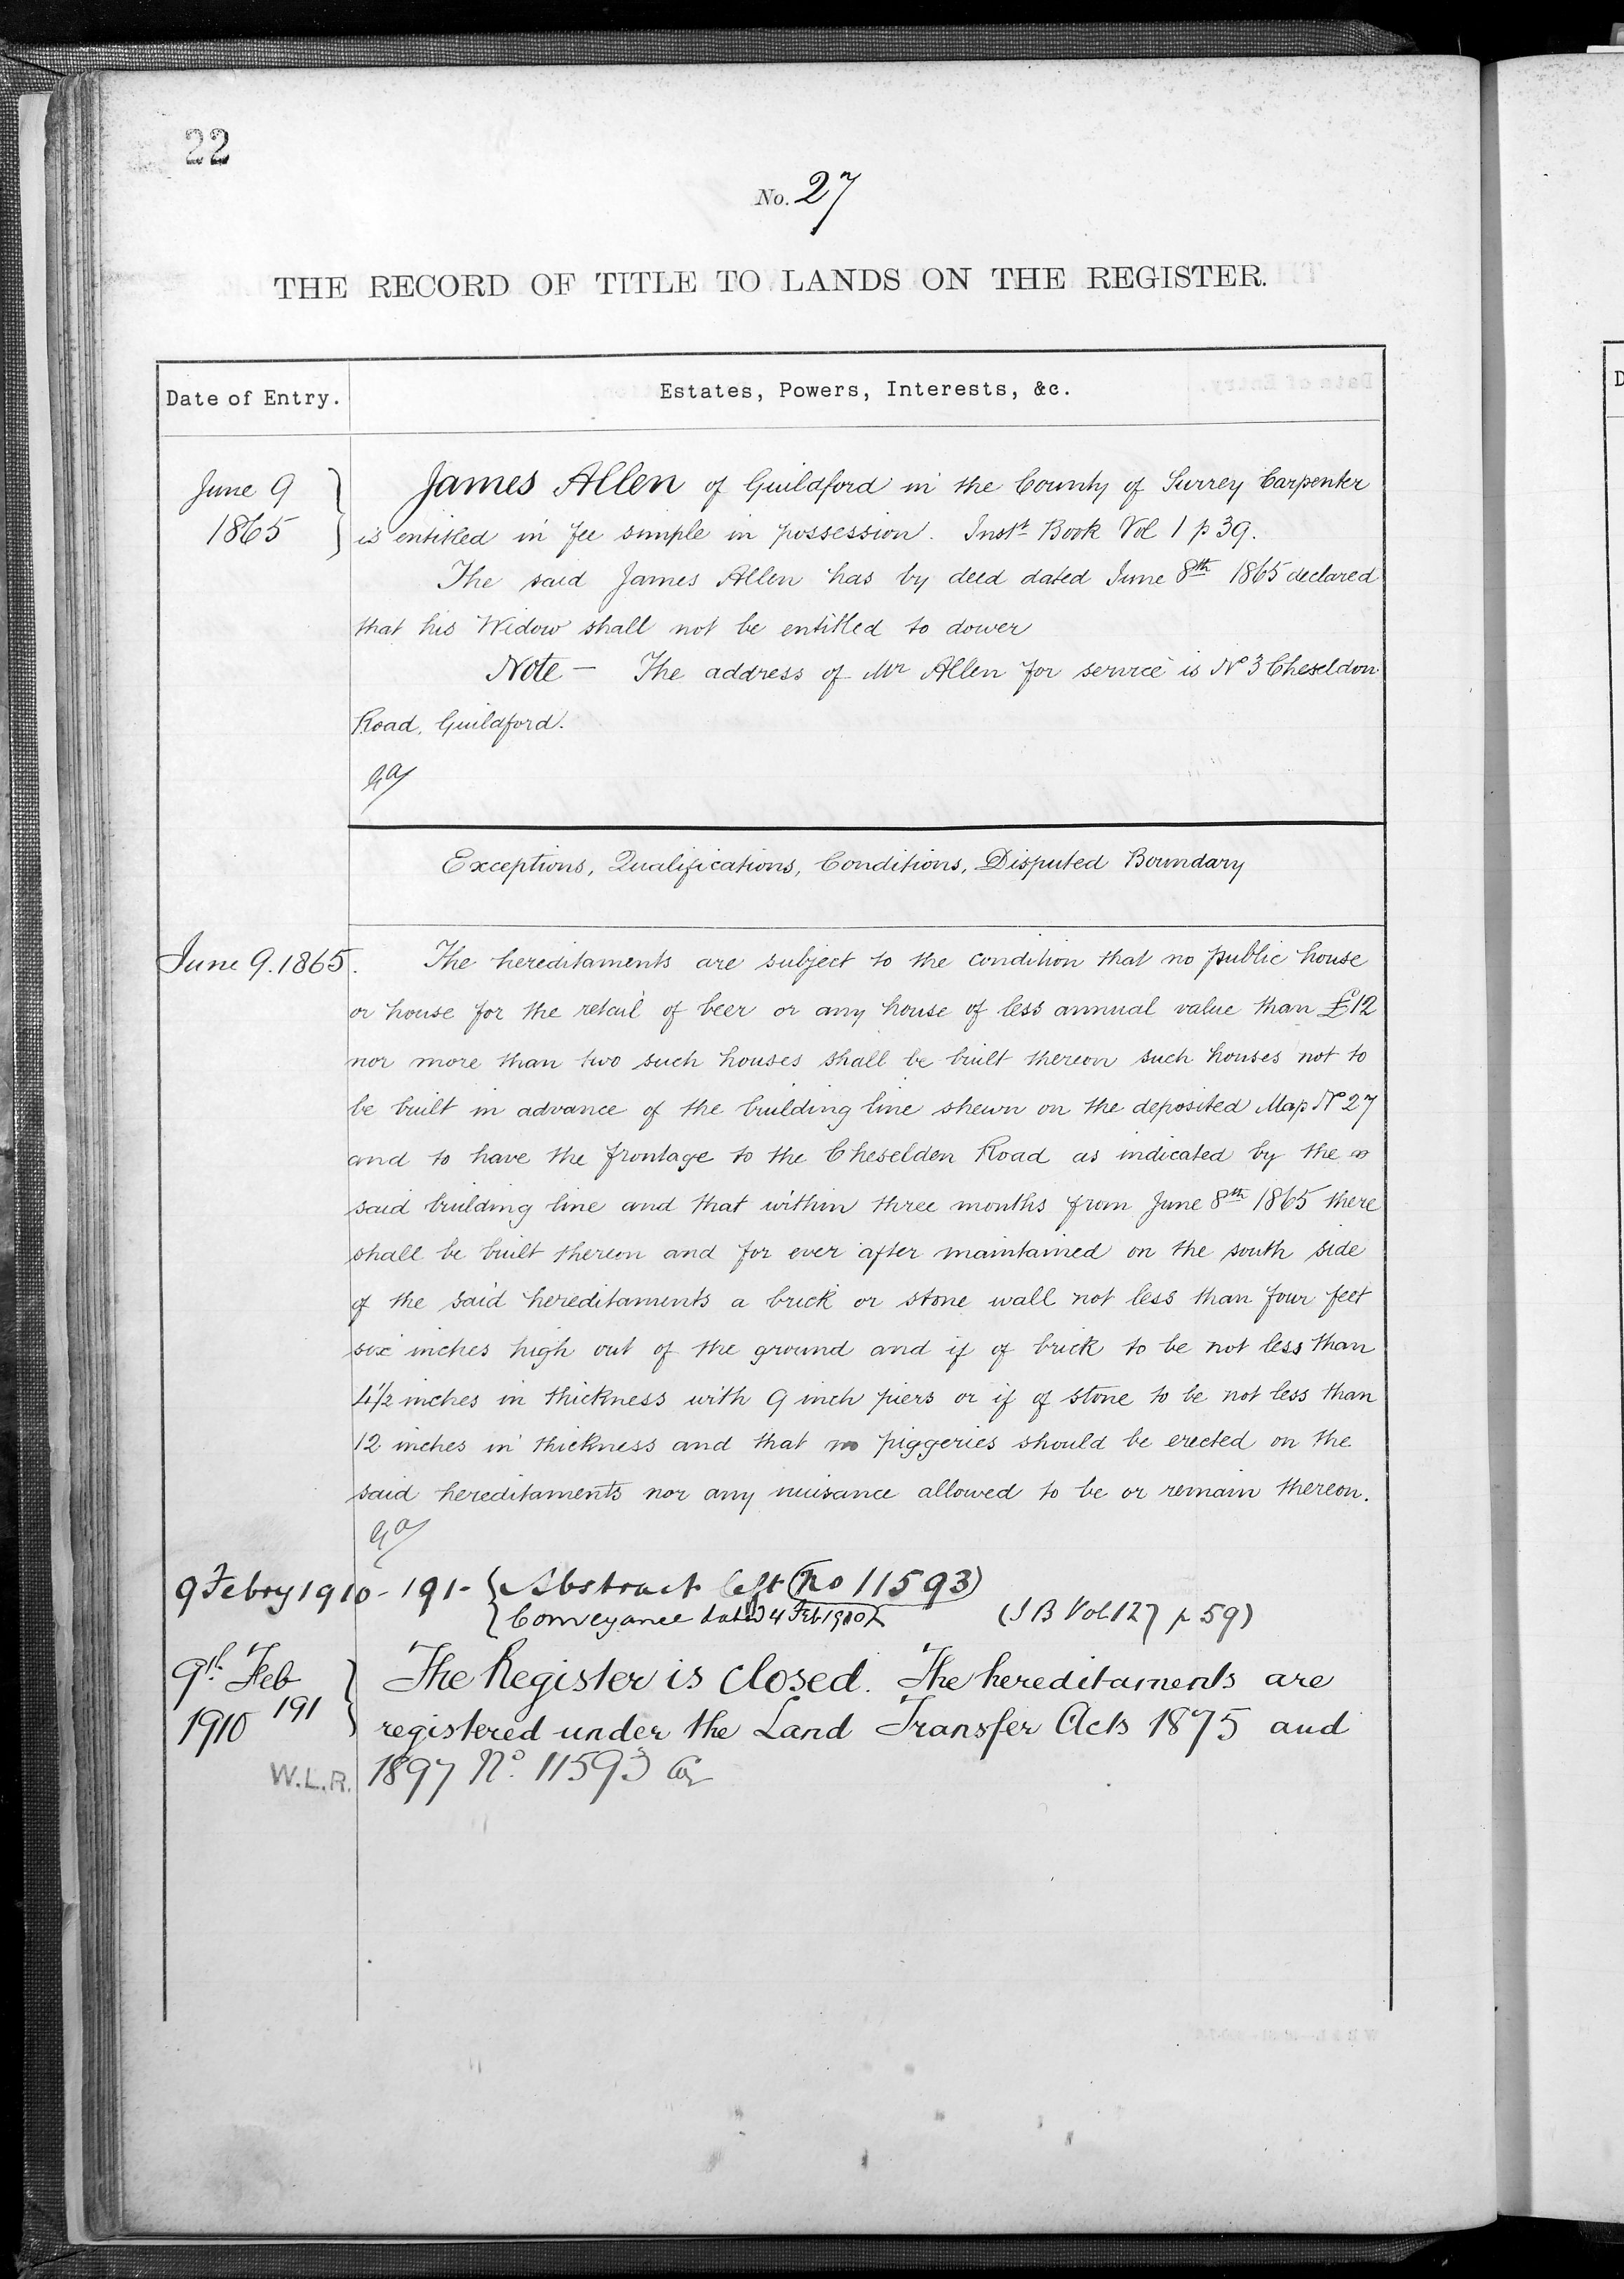 22
No. 27
THE RECORD OF TITLE TO LANDS ON THE REGISTER.
Date of Entry.
Estates, Powers, Interests, &c.
June 9
1865
James Allen of Guildford in the County of Surrey Carpenter
is entitled in fee simple in possession. Instt Book Vol 1 p 39.
The said James Allen has by deed dated June 8th 1865 declared
that his Widow shall not be entitled to dower
Note – The address of Mr Allen for service is No 3 Cheseldon
Road, Guildford.
Exceptions, Qualifications, Conditions, Disputed Boundary
June 9. 1865.
The hereditaments are subject to the condition that no public house
or house for the retail of beer or any house of less annual value than £12
nor more than two such houses shall be built thereon such houses not to
be built in advance of the building line shewn on the deposited Map No 27
and to have the frontage to the Cheselden Road as indicated by the
said building line and that within three months from June 8th 1865 there
shall be built thereon and for ever after maintained on the south side
of the said hereditaments a brick or stone wall not less than four feet
six inches high out of the ground and if of brick to be not less than
4½ inches in thickness with 9 inch piers or if of stone to be not less than
12 inches in thickness and that no piggeries should be erected on the
said hereditaments nor any nuisance allowed to be or remain thereon.
9 Febry 1910 - 191 - Abstract left No 11593
Conveyance dated 4 Feb 1910 (I B Vol 127 p 59)
9th Feb
1910 191
The Register is closed. The hereditaments are
registered under the Land Transfer Acts 1875 and
W.L.R. 1897 No. 11593